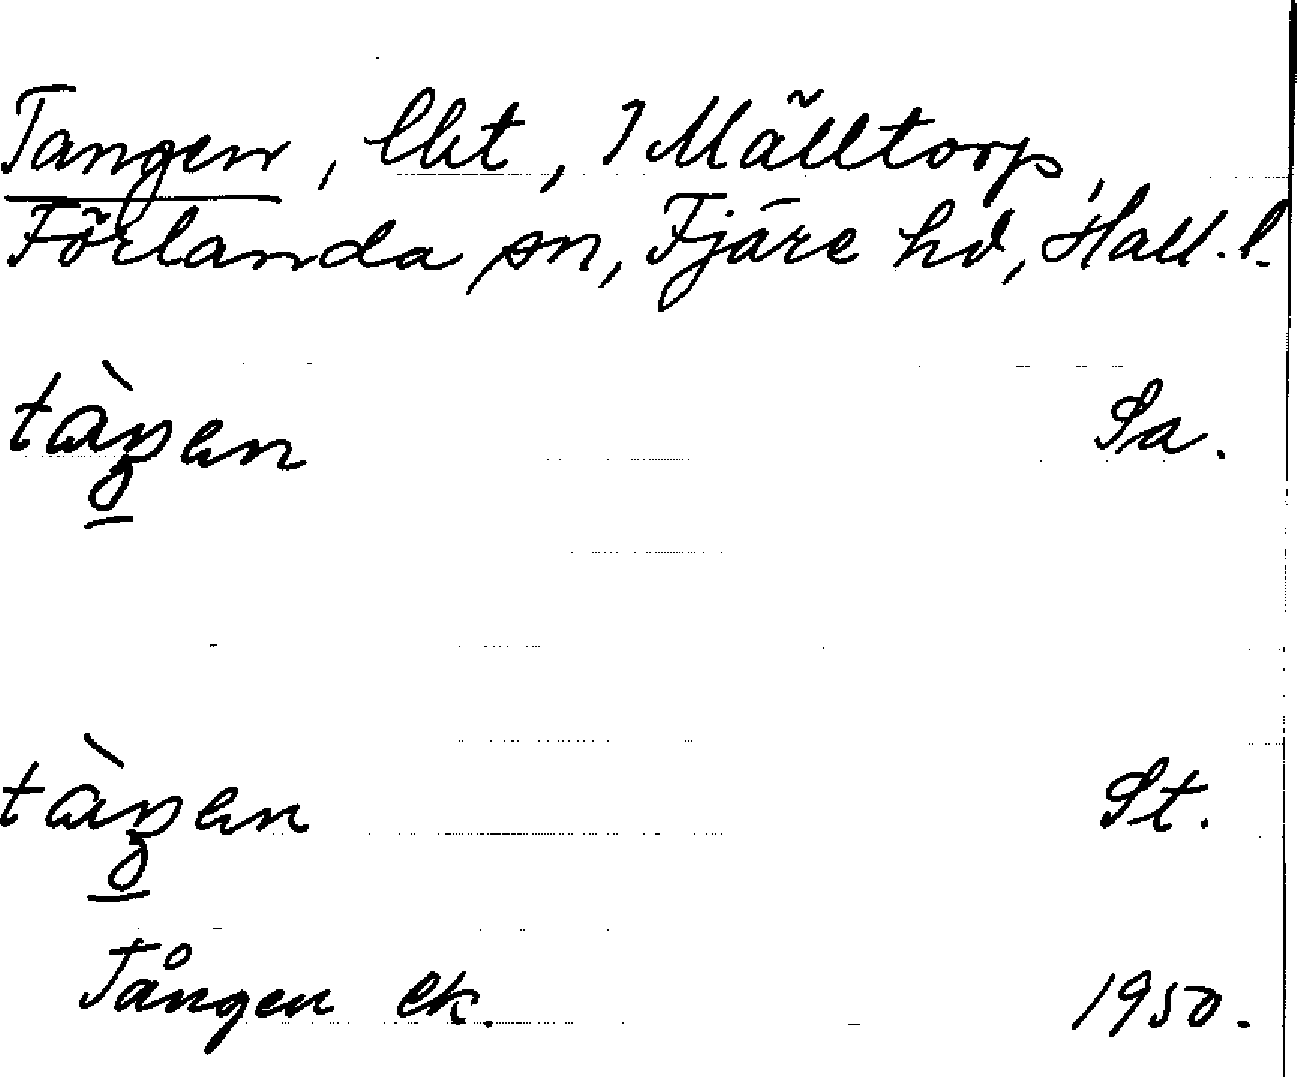 Tangen, lht, 1 Mälltorp,
Förlanda sn, Fjäre hd, Hall. l.
tàŋen Sa.
tàŋen St.
Tången ek. 1950.